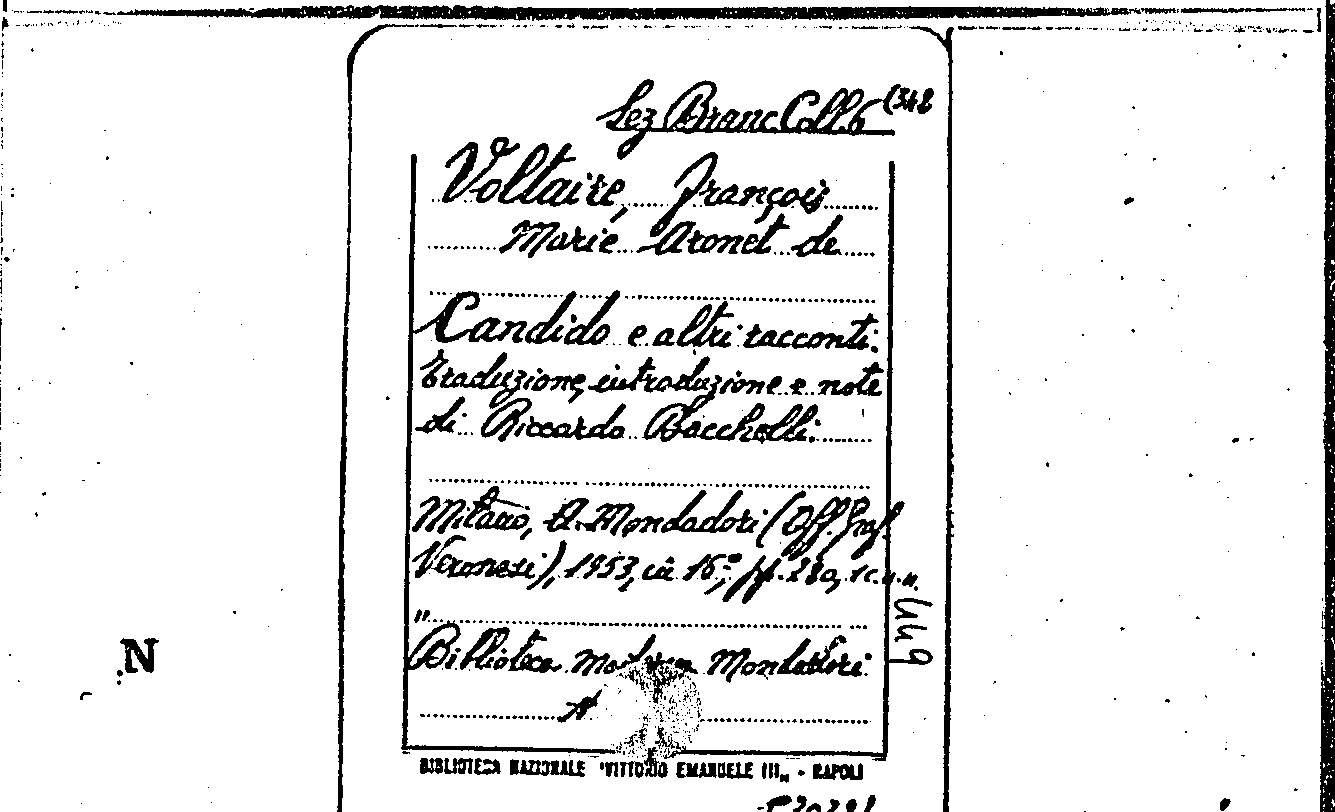 Sez Branc. Coll. 6 (342
Voltaire, François
Marie Aronet de
Candido e altri racconti.
Traduzione, introduzione e note
di Riccardo Bacchelli.
Milano, A. Mondadori (Off. Graf.
Veronesi), 1953, in 16°, pp. 280, 1 c.n.n.
"
Biblioteca moderna Mondadori
449
N
BIBLIOTECA NAZIONALE "VITTORIO EMANUELE III„ - NAPOLI